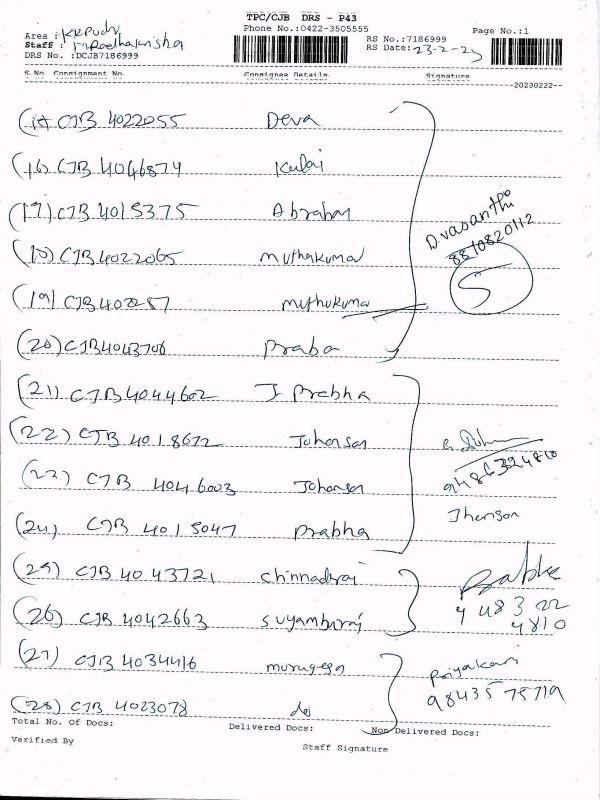 TPC/CJB DRS - P43
Phone No.:0422-3505555
Area : KKPudy
Staff :
DRS No. :DCJB7186999
RS No.:7186999
RS Date:23-2-23
Page No.:1
S.No. Consignment No. Consignee Details Signature
--20230222--
CJB 4022055 Deva
(16) CJB 4046874 Kalai
(17) CJB 4015375 Abraham
(18) CJB 4022065 muthukumar
(19) CJB muthukuma
(20) CJB4043706 Praba
D.vasanthi
8810820112
5
(21) CJB 4044602 J. Prabha
(22) CJB 4018672 Johnson
(23) CJB 4046003 Johnson
(24) CJB 4015047 Prabha
Jhonson
(25) CJB 4043721 Chinnadurai
(26) CJB 4042663 Suyamburaj
Prabha
9483 22
4810
(27) CJB 4034416 murugesa
(28) CJB 4023078 do
Priyakani
9843575719
Total No. Of Docs: Delivered Docs: Non Delivered Docs:
Verified By
Staff Signature